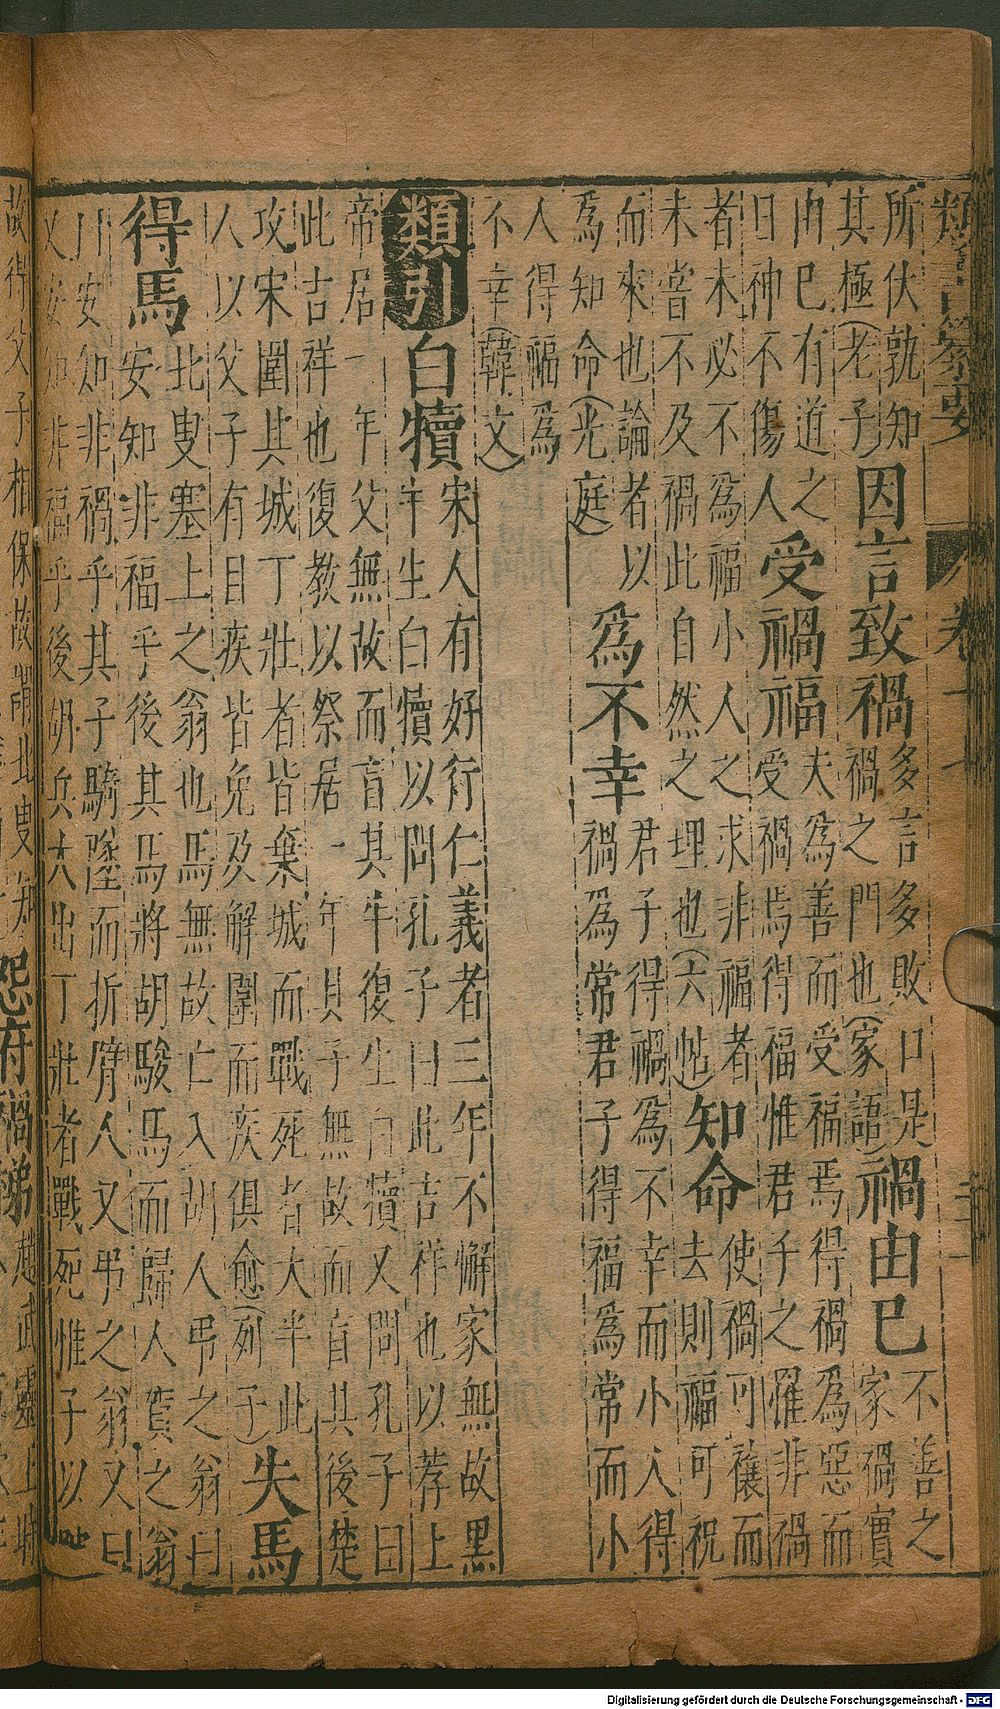 類書纂要 卷十
所伏孰知
其極(老子)
因言致禍
多言多敗口是
禍之門也(家語)
禍由巳
不善之
家禍實
由巳有道之
日神不傷人
受禍福
夫為善而受福焉得禍為惡而
受禍焉得福惟君子之罹非禍
者本必不為福小人之求非福者
未嘗不及禍此自然之理也(六帖)
知命
使禍可禳而
去則福可祝
而來也論者以
爲知命(光庭)
爲不幸
君子得禍爲不幸而小人得
禍爲常君子得福爲常而小
人得福爲
不幸(韓文)
類引
白犢
宋人有好行仁義者三年不懈家無故黑
牛生白犢以問孔子曰此吉祥也以荐上
帝居一年父無故而盲其牛復生白犢又問孔子曰
此吉祥也復教以祭居一年其子無故而盲其後楚
攻宋圍其城丁壯者皆乘城而戰死者大半此
人以父子有目疾皆免及解圍而疾俱愈(列子)
失馬
得馬
北叟塞上之翁也馬無故亡入胡人弔之翁曰
安知非福乎後其馬將胡駿馬而歸人賀之翁
曰安知非禍乎其子騎墜而折臂人又弔之翁又曰
又安知非福乎後胡兵大出丁壯者戰死惟子以
故得父子相保故謂北叟知
怨府禍梯
趙武靈王
Digitalisierung gefördert durch die Deutsche Forschungsgemeinschaft - DFG